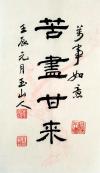 萬事如意
苦盡甘来
壬辰元月玉山人